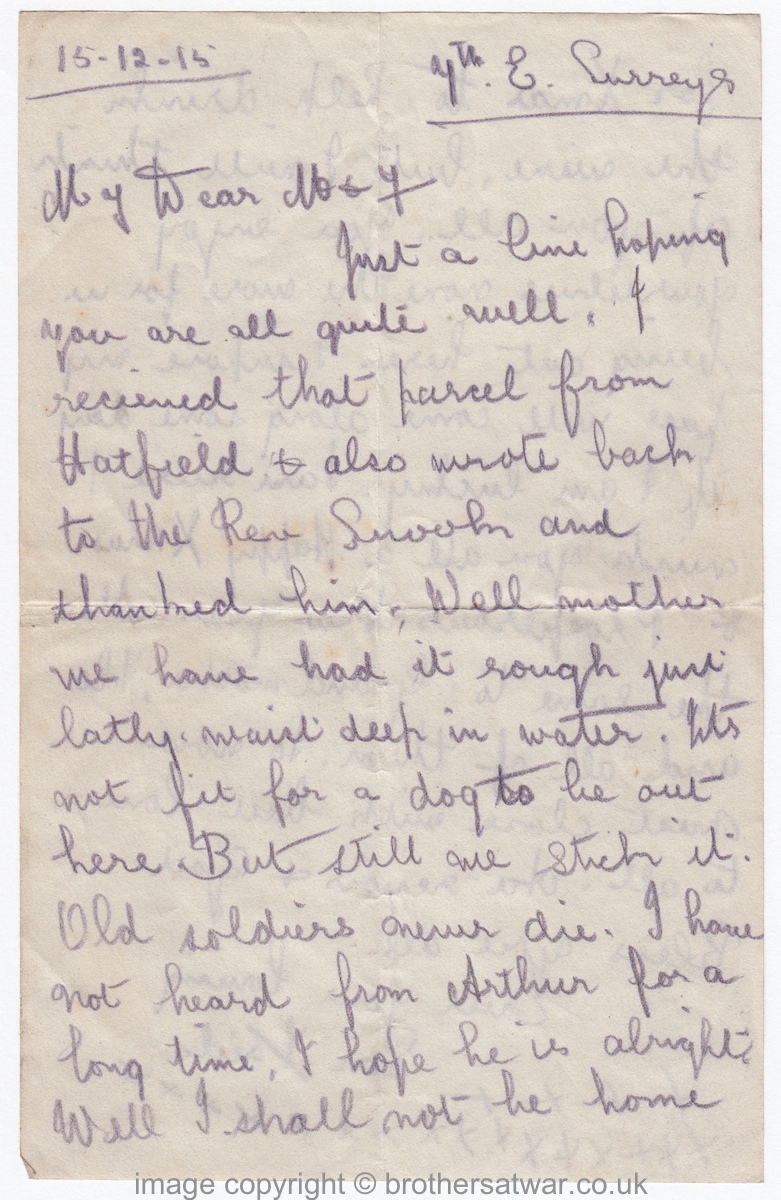 15-12-15
7th. E. Surreys
My Dear M & F
Just a line hoping
you are all quite well. I
recieved that parcel from
Hatfield & also wrote back
to the Rev Snooks and
thanked him. Well mother
we have had it rough just
latly. waist deep in water. Its
not fit for a dog to be out
here. But still we stick it.
Old soldiers never die. I have
not heard from Arthur for a
long time, I hope he is alright.
Well I shall not be home
image copyright © brothersatwar.co.uk